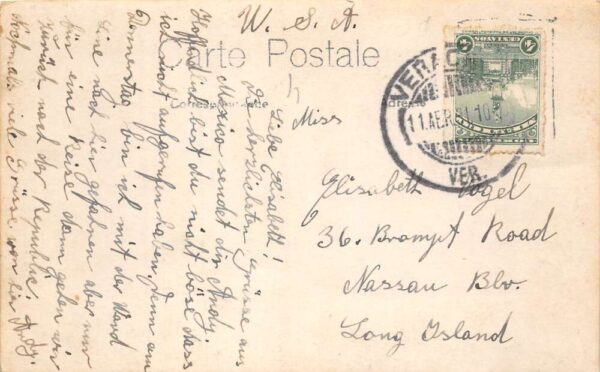 U. S. A.
Carte Postale
Correspondance
Adresse
VERACRUZ
11.ABR.
VER.
4
Liebe Elisabett!
Die herzlichsten Grüsse aus
Mexico sendet dir Andy.
Hoffentlich bist du nicht böse dass
ich nicht aufgerufen haben, denn am
Donnerstag bin ich mit der Ward
Line nach hier gefahren aber nur
für eine Reise dann gehen wir
zurück nach der Republic.
Nochmals viele Grüsse von hier Andy.
Miss
Elisabeth Vogel
36. Brompt Road
Nassau Blv.
Long Island